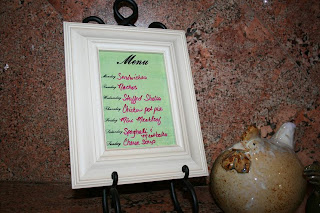 Menu
Monday Sandwiches
Tuesday Nachos
Wednesday Stuffed Shells
Thursday Chicken pot pie
Friday Mini Meatloaf
Saturday Spaghetti & Meatballs
Sunday Cheese Soup